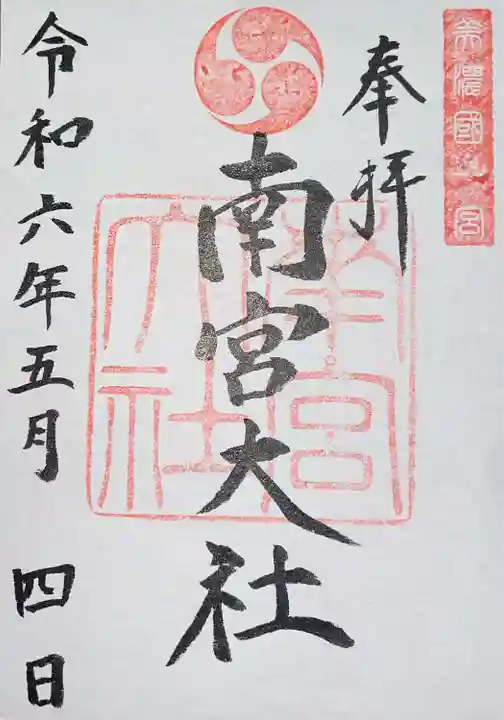 美濃國一之宮
奉拝
南宮大社
南宮大社
令和六年五月四日